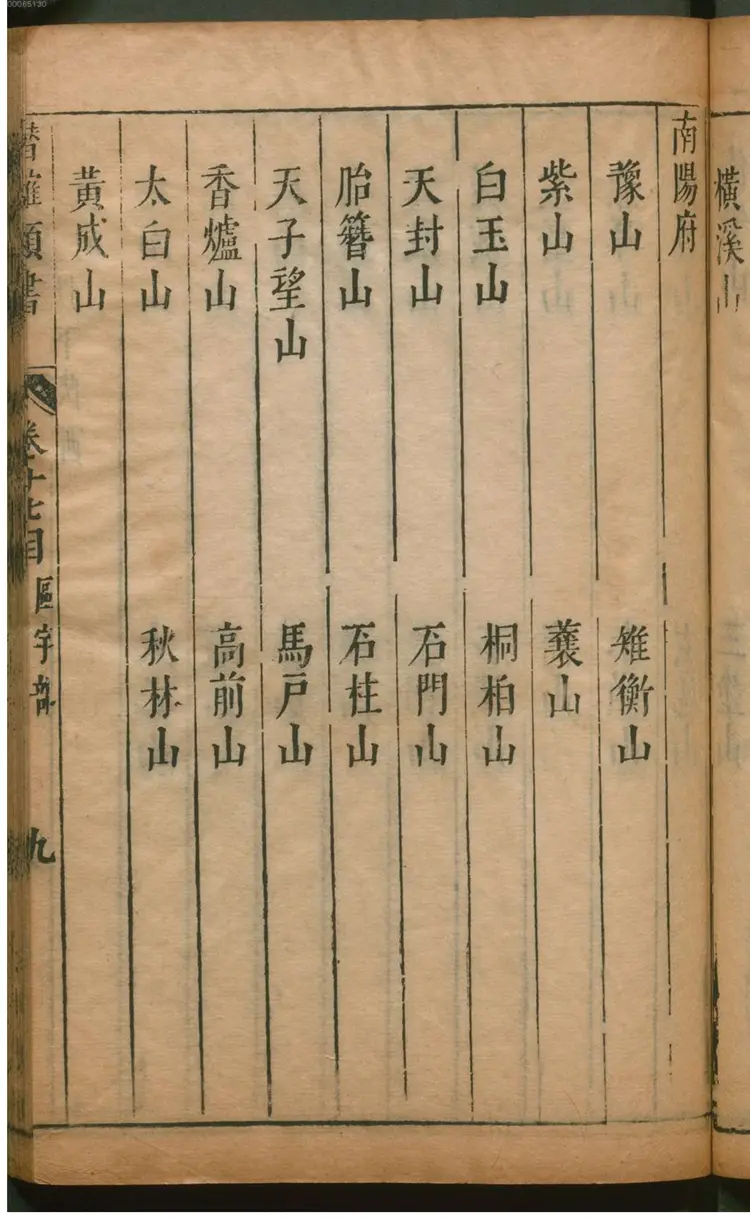 00065130
橫溪山
南陽府
豫山　雉衡山
紫山　蓑山
白玉山　桐柏山
天封山　石門山
胎簪山　石柱山
天子望山　馬戸山
香爐山　高前山
太白山　秋林山
黃成山
潛確類書　卷十七目　區宇部　九